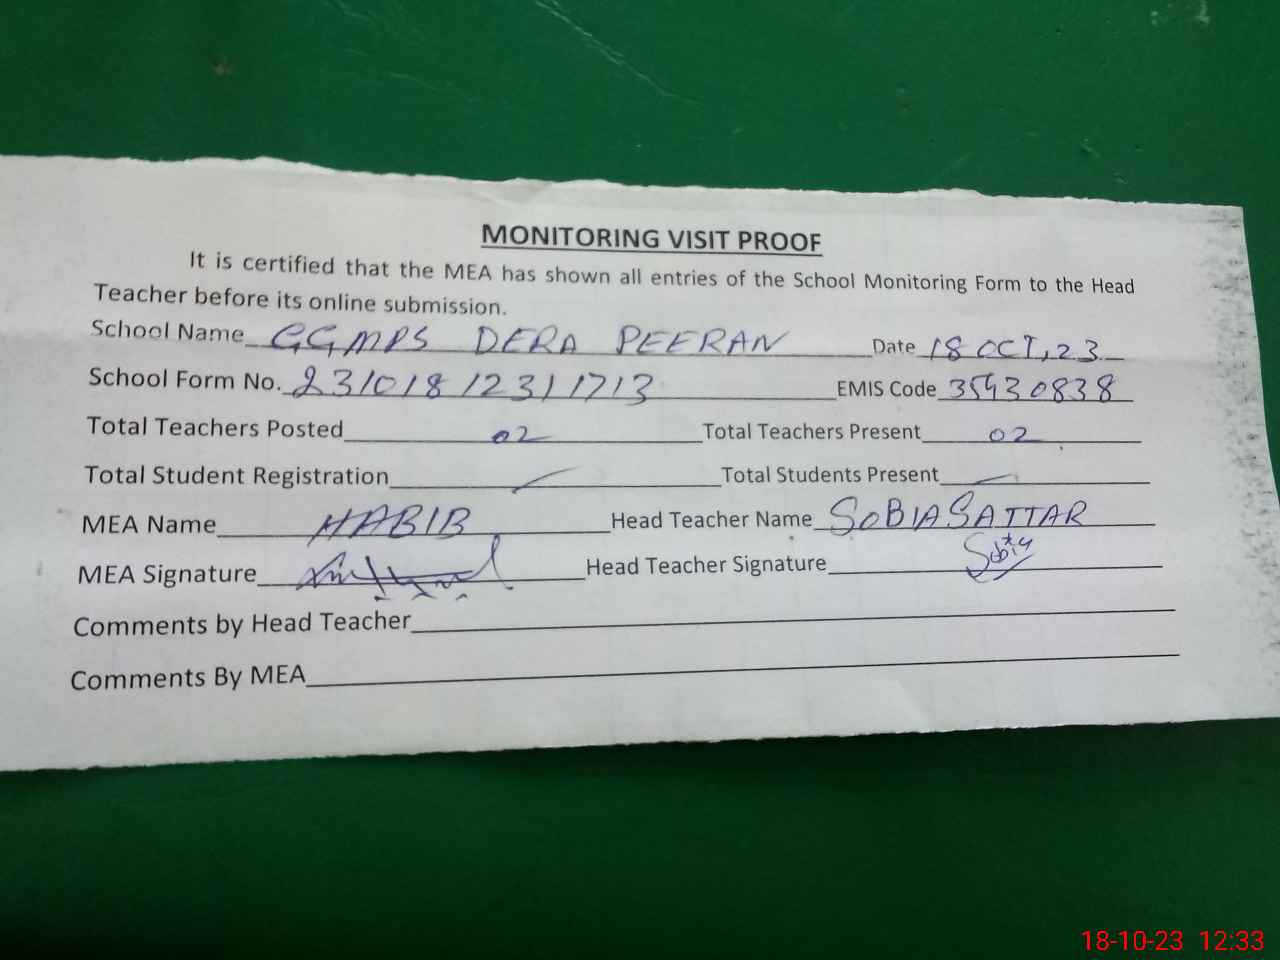 MONITORING VISIT PROOF
It is certified that the MEA has shown all entries of the School Monitoring Form to the Head
Teacher before its online submission.
School Name GGMPS DERA PEERAN Date 18 OCT, 23
School Form No. 231018 12311713 EMIS Code 35430838
Total Teachers Posted 02 Total Teachers Present 02
Total Student Registration Total Students Present
MEA Name HABIB Head Teacher Name SOBIA SATTAR
MEA Signature Head Teacher Signature
Comments by Head Teacher
Comments By MEA
18-10-23 12:33